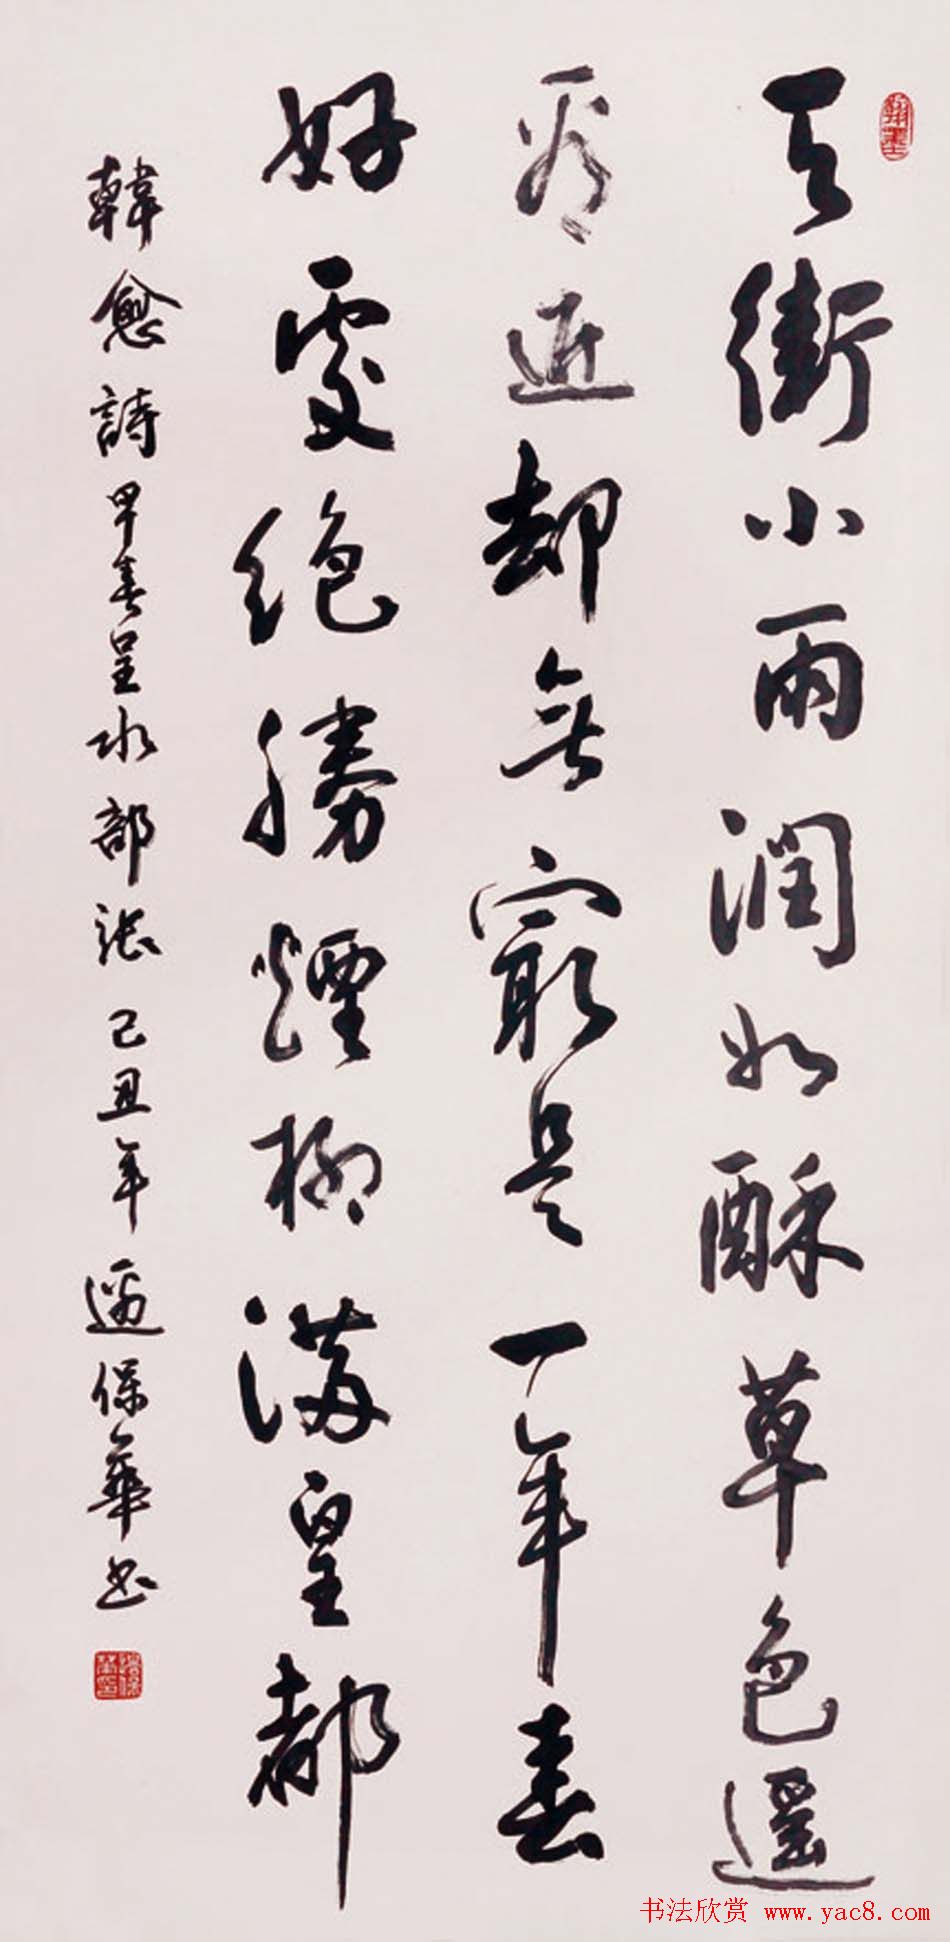 翰墨
天街小雨潤如酥草色遥
看近却無最是一年春
好處絶勝煙柳滿皇都
韓愈詩早春呈水部張 己丑年 邊保華書
书法欣赏 www.yac8.com